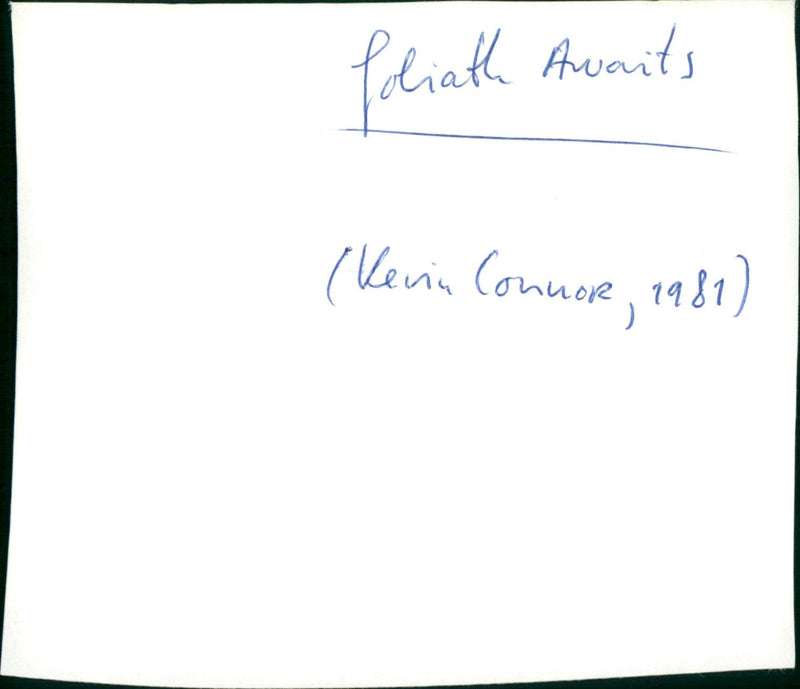 Goliath Awaits
(Kevin Connor, 1981)